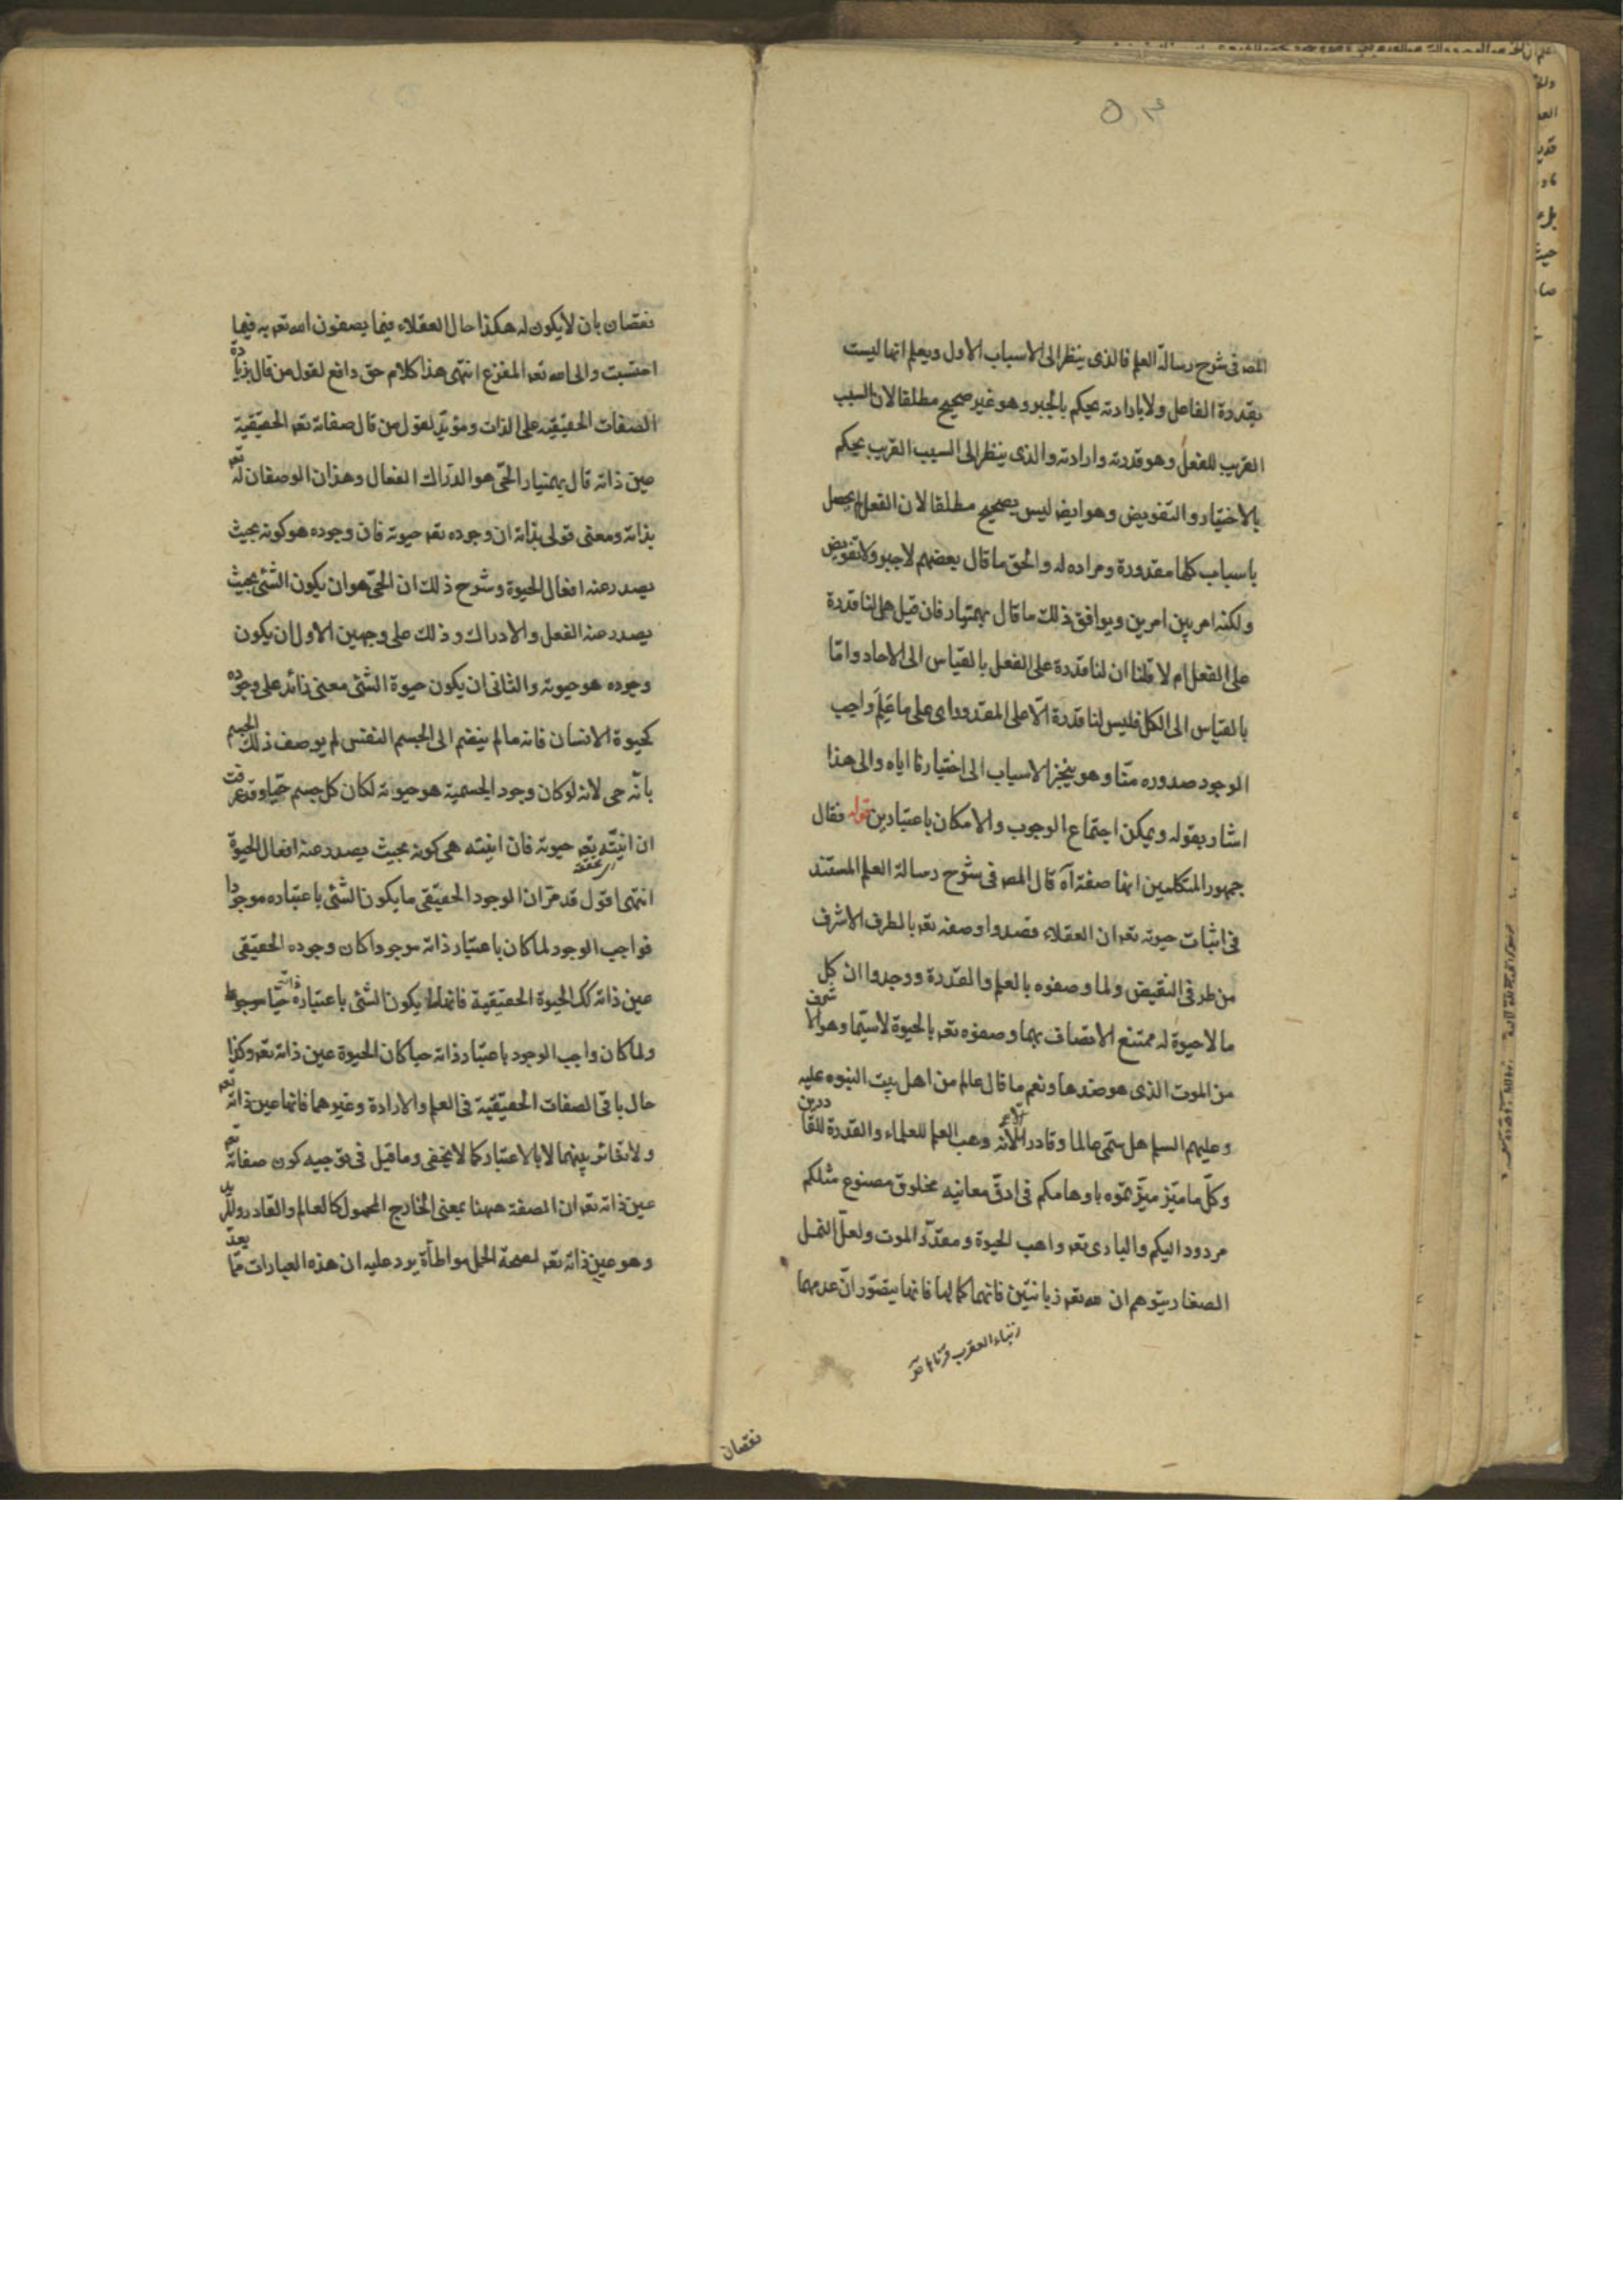 المصـ فى شرح رسالة العلم فالذى ينظر الى الاسباب الاول ويعلم انها ليست
بقدرة الفاعل ولا بارادته يحكم بالجبر وهو غير صحيح مطلقا لان السبب
القريب للفعل وهو قدرته وارادته والذى ينظر الى السبب القريب يحكم
بالاختيار والتفويض وهو ايضا ليس بصحيح مطلقا لان الفعل لم يحصل
باسباب كلها مقدورة ومراده له والحق ما قال بعضهم لا جبر ولا تفويض
ولكنه امر بين امرين ويوافق ذلك ما قال بهمنيار فان قيل هل لنا قدرة
على الفعل ام لا قلنا ان لنا قدرة على الفعل بالقياس الى الاحاد واما
بالقياس الى الكل فليس لنا قدرة الا على المقدور اى على ما عُلِمَ واجب
الموجود صدوره منّا وهو ينجز الاسباب الى اختيارنا اياه والى هذا
اشار بقوله ويمكن اجتماع الوجوب والامكان باعتبارين قوله فقال
جمهور المتكلمين انها صفة آه قال المصـ فى شرح رسالة العلم المستند
فى اثبات حيوته تعـ ان العقلاء قصدوا وصفه تعـ بالطرف الاشرف
من طرفى النقيض ولما وصفوه بالعلم والقدرة ووجدوا ان كل
ما لا حيوة له ممتنع الاتصاف بهما وصفوه تعـ بالحيوة لاسيّما وهو الاشرف
من الموت الذى هو ضدها ونعم ما قال عالم من اهل بيت النبوه عليه
وعليهم السلم هل سمّى عالما وقادرا الا لانه وهب العلم للعلماء والقدرة للقادرين
وكلّ ما ميّز تموه باوهامكم فى ادقّ معانيه مخلوق مصنوع مثلكم
مردود اليكم والبارى تعـ واهب الحيوة ومقدّر الموت ولعلّ النمل
الصغار يتوهم ان لله تعـ زبانتين فانهما كمالها فانها يتصوّر انّ عدمهما
زنباء العقرب قرناها
نقصان
نقصان بان لا يكون له هكذا حال العقلاء فيما يصفون الله تعـ به فيما
احتسبت والى الله تعـ المفزع انتهى هذا كلام حق دافع لقول من قال بزيادة
الصفات الحقيقيه على الذات ومؤيّد لقول من قال صفاته تعـ الحقيقية
عين ذاته قال بهمنيار الحىّ هو الدرّاك الفعال وهذان الوصفان له تعـ
بذاته ومعنى قولى بذاته ان وجوده تعـ حيوته فان وجوده هو كونه بحيث
يصدر عنه افعال الحيوة وشرح ذلك ان الحىّ هو ان يكون الشئ بحيث
يصدر عنه الفعل والادراك وذلك على وجهين الاول ان يكون
وجوده هو حيوته والثانى ان يكون حيوة الشئ معنى زائد على وجوده
كحيوة الانسان فانه ما لم ينضم الى الجسم النفس لم يوصف ذلك الجسم
بانّه حى لانه لو كان وجود الجسمية هو حيوته لكان كل جسم حيّا وقد عرفت
ان انيّته تعـ حيوته فان انيته هى كونه بحيث يصدر عنه افعال الحيوة
انتهى اقول قد مرّ ان الوجود الحقيقى ما يكون الشئ باعتباره موجودا
فواجب الوجود لما كان باعتبار ذاته موجودا كان وجوده الحقيقى
عين ذاته كك الحيوة الحقيقية فانها ما يكون الشئ باعتباره حيّا
ولما كان واجب الوجود باعتبار ذاته حيا كان الحيوة عين ذاته تعـ وكذا
حال باقى الصفات الحقيقية فى العلم والارادة وغيرهما فانها عين ذاته تعـ
ولا تغائر بينهما الا بالاعتبار كما لا يخفى وما قيل فى توجيه كون صفاته تعـ
عين ذاته تعـ ان الصفة ههنا بمعنى الخارج المحمول كالعالم والقادر والمريد
وهو عين ذاته تعـ لصحة الحمل مواطأة يرد عليه ان هذه العبارات ممّا يعدّ